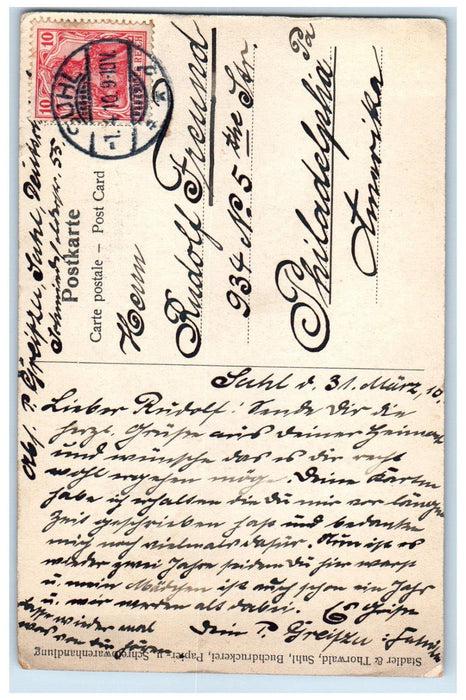 SUHL
1. 4. 10. 9-10 V.
10
10
Postkarte
Carte postale – Post Card
Herrn
Rudolf Freund
934 No. 5 the Str.
Philadelphia Pa
Amerika
Abs. P. Greifzu, Suhl, Deutschl.
55
Suhl d. 31. März 10.
Lieber Rudolf! Sende Dir die
herzl. Grüße aus deiner Heimat
und wünsche das es dir recht
wohl ergehen möge. Deine Karten
habe ich erhalten die du mir vor längerer
Zeit geschrieben hast und bedanke
mich noch vielmals dafür. Nun ist es
wieder zwei Jahre seitdem du hier warst
u. mein Mädchen ist auch schon ein Jahr
u. wir werden alt dabei. Es Grüßt
Dein P. Greifzu u. Familie
Lasse wieder mal
was von dir hören
Stadler & Thorwald, Suhl, Buchdruckerei, Papier- u. Schreibwarenhandlung